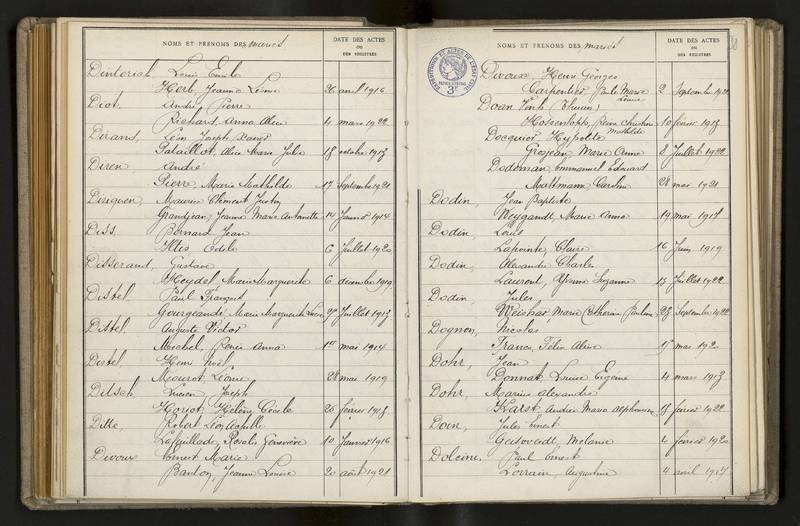 NOMS ET PRÉNOMS DES mariés
DATE DES ACTES
OU
DES REGISTRES
Dintorich Louis Emile
Herb, Jeanne Léonie 26 avril 1916
Diot, André Pierre
Richard Anne Alice 4 mars 1922
Dirand, Léon Joseph Xavier
Pataillot, Alice Marie Julie 18 octobre 1913
Diren André
Pierre, Marie Mathilde 17 Septembre 1921
Dirigoen, Maurice Clément Justin
Grandjean, Jeanne Marie Antoinette 14 Janvier 1914
Diss, Bernard Jean
Ites, Odile 6 Juillet 1920
Disserand, Gustave
Heydel Marie Marguerite 6 décembre 1919
Distel, Paul François
Gourgeandé, Marie Marguerite Juillet 1913
Distel, Auguste Victor
Mirabel, Renée Anna 14 mai 1914
Distel, Henri Noël
Mourot, Léonie 28 mai 1919
Ditsch, Lucien Joseph
Horiot, Hélène Cécile 26 février 1913
Ditte, Robert Léon Achille
Lefeuillade, Rosalie Geneviève 10 Janvier 1916
Divoux, Ernest Marie
Bardon, Jeanne Louise 20 août 1921
NOMS ET PRÉNOMS DES mariés
DATE DES ACTES
OU
DES REGISTRES
3F
Divoux, Henri Georges
Carpentier, Berthe Marie Louise 2 Septembre 1921
Doan Vinh (Thuan)
Hosenlopp, Reine Christine Mathilde 10 février 1913
Docquier, Hypolite
Grosjean, Marie Anna 8 Juillet 1922
Dodeman, Emmanuel Edouard
Maltmann Caroline 28 mai 1921
Dodin, Jean Baptiste
Weygandt, Marie Anna 19 mai 1917
Dodin, Louis
Lapointe, Claire 16 Juin 1919
Dodin, Alexandre Charles
Laurent, Yvonne Suzanne 13 Juillet 1922
Dodin, Jules
Weishar, Marie Catherine Pauline 23 Septembre 1922
Dognon, Nicolas
France, Félix Aline 15 mai 1920
Dohr, Jean
Donnat, Louise Eugénie 4 mars 1913
Dohr, Marius Alexandre
Karst, Andrée Marie Alphonsine 18 février 1922
Doin, Jules Ernest
Gasovadt, Mélanie 4 février 1920
Dolcine, Paul Ernest
Lorrain, Augustine 4 avril 1917